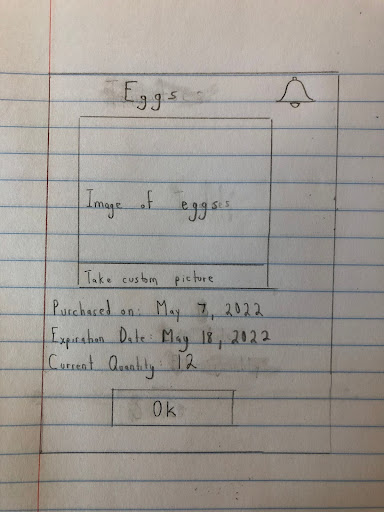 Eggs
Image of eggs
Take custom picture
Purchased on: May 7, 2022
Expiration Date: May 18, 2022
Current Quantity: 12
Ok